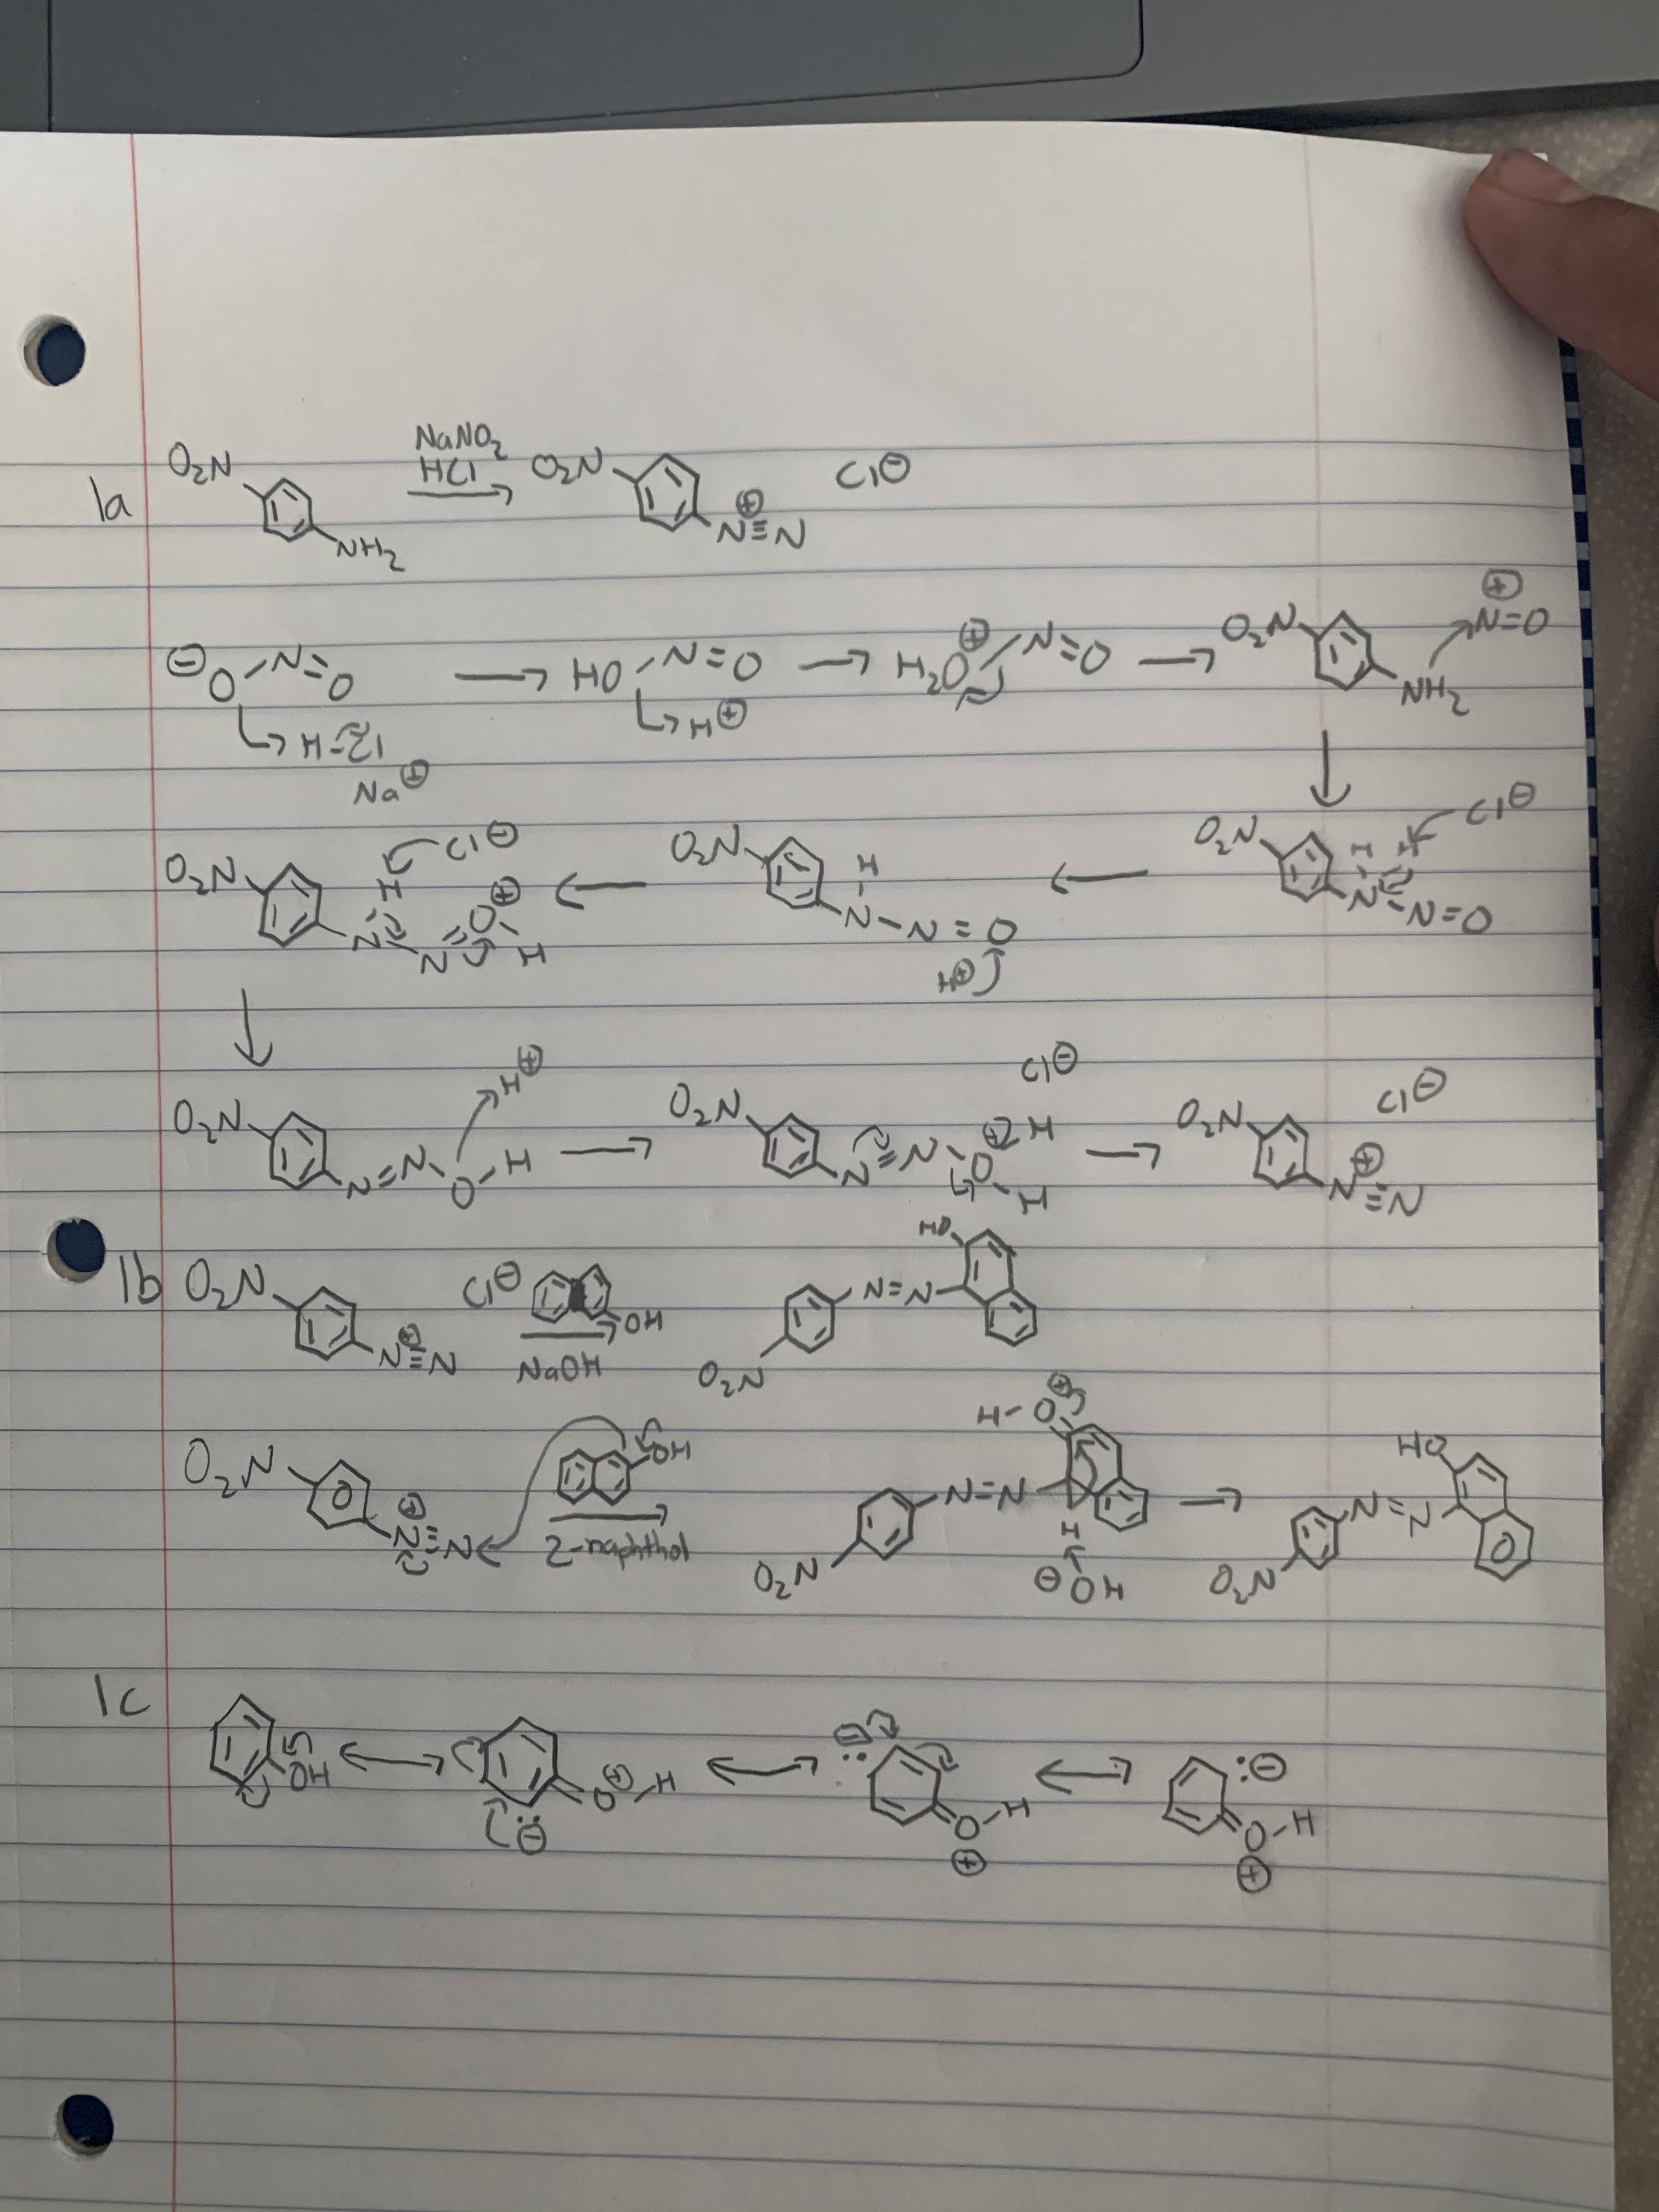 1a O₂N NH₂ NaNO₂ HCl O₂N ⊕ N≡N Cl⊖
⊖O-N=O H-Cl Na⊕ → HO-N=O H⊕ → H₂O⊕-N=O → O₂N NH₂ ⊕ N=O
O₂N H Cl⊖ N N=O⊕ H ← O₂N H N-N=O H⊕ ← O₂N H H Cl⊖ N-N=O
O₂N N=N-O-H H⊕ → O₂N N=N-O⊕ H H Cl⊖ → O₂N ⊕ N≡N Cl⊖
1b O₂N ⊕ N≡N Cl⊖ OH NaOH O₂N N=N HO
O₂N ⊕ N≡N OH 2-naphthol O₂N N=N H-O⊕ H ⊖OH → O₂N N=N HO
1c OH ↔ ⊖ O⊕-H ↔ ⊖ O-H ⊕ ↔ :⊖ O-H ⊕